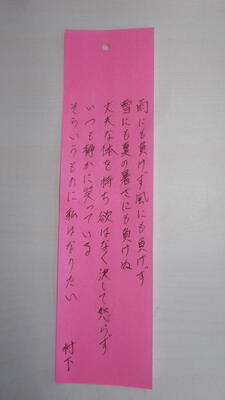 雨にも負けず風にも負けず
雪にも夏の暑さにも負けぬ
丈夫な体を持ち欲はなく決して怒らず
いつも静かに笑っている
そういうものに私はなりたい
村下